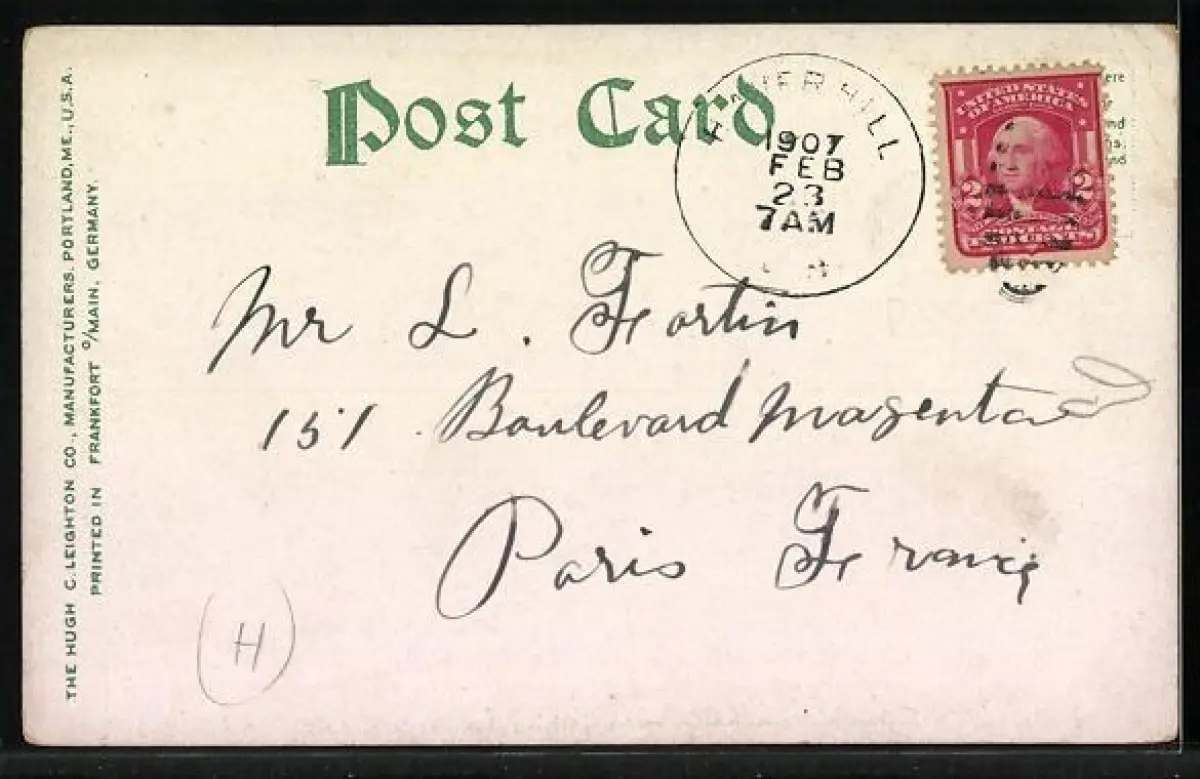 Post Card
1907
FEB
23
7AM
UNITED STATES
OF AMERICA
2 2
POSTAGE
TWO CENTS
Mr L. Fortin
151 Boulevard Magenta
Paris France
(H)
THE HUGH C. LEIGHTON CO., MANUFACTURERS, PORTLAND, ME., U.S.A.
PRINTED IN FRANKFORT O/MAIN, GERMANY.